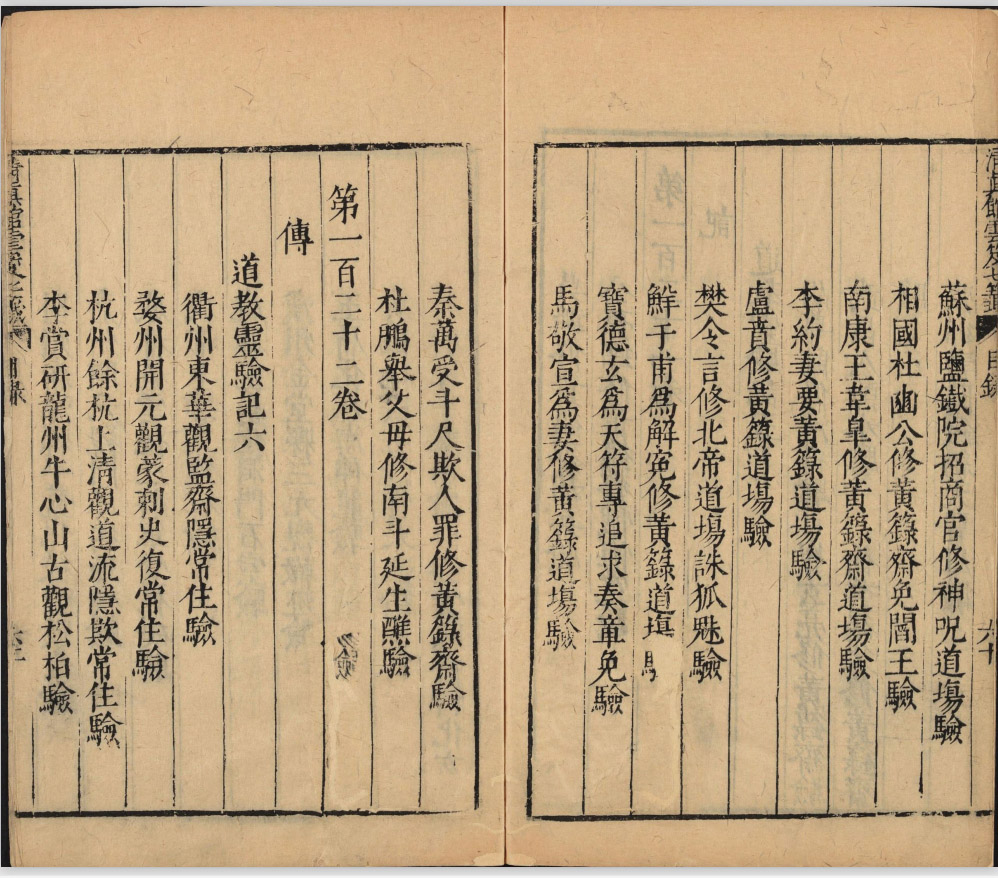 蘇州鹽鐵院招商官修神呪道場驗
相國杜豳公修黃籙齋免閻王驗
南康王韋臯修黃籙齋道場驗
李約妻要黃籙道場驗
盧賁修黃籙道場驗
樊令言修北帝道場誅狐魅驗
鮮于甫爲解寃修黃籙道塲
竇德玄爲天符專追求奏章免驗
馬敬宣爲妻修黃籙道塲驗
秦萬受斗尺欺人罪修黃籙齋驗
杜鵬舉父母修南斗延生醮驗
第一百二十二卷
傳
道教靈驗記六
衢州東華觀監齋隱常住驗
婺州開元觀蒙刺史復常住驗
杭州餘杭上清觀道流隱欺常住驗
李賞斫龍州牛心山古觀松柏驗